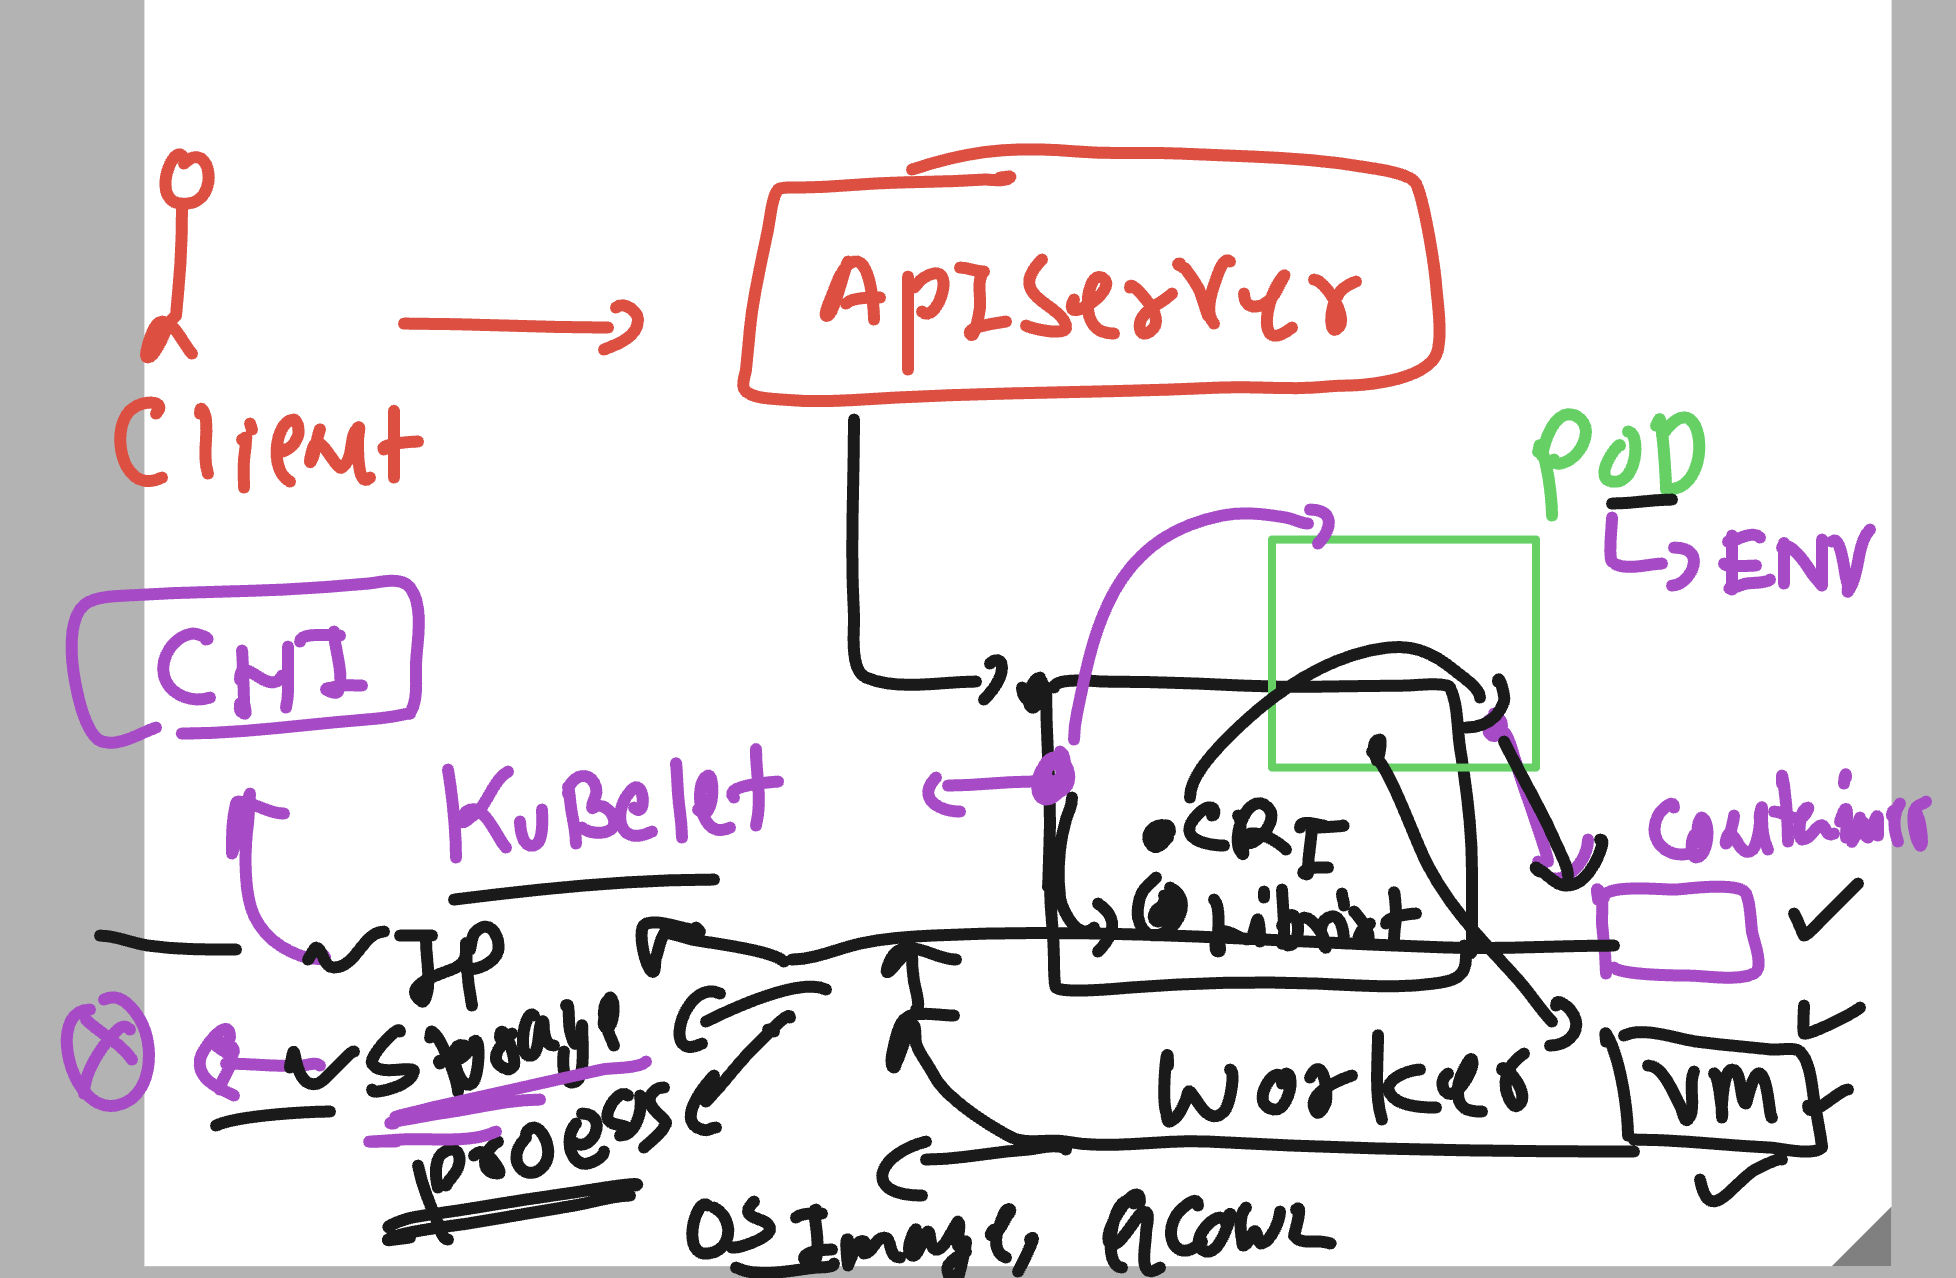 ApIServer
Client
POD
ENV
CNI
KuBelet
CRI
Libvirt
Containers
IP
Storage
process
Worker
VM
OS Image, qcow2